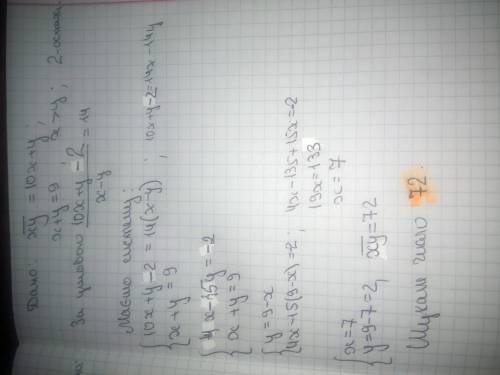 Дано: xy = 10x+y;
x+y=9; x>y; 2-остача
За умовою (10x+y-2)/(x-y) = 14
Маємо систему:
{10x+y-2 = 14(x-y) ; 10x+y-2=14x-14y
{x+y=9
{4x-15y=-2
{x+y=9
{y=9-x
{4x-15(9-x)=-2; 4x-135+15x=-2
19x=133
x=7
{x=7
{y=9-7=2, xy=72
Шукане число 72.